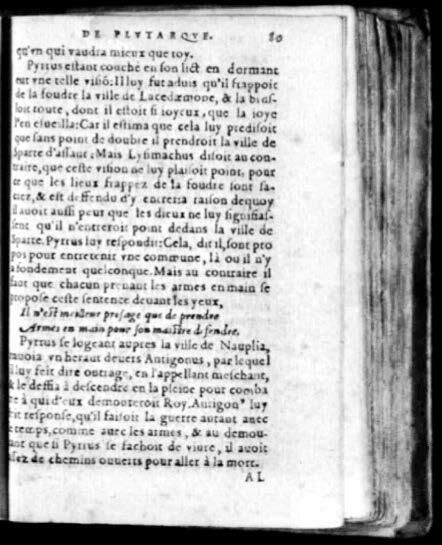 DE PLVTARQVE. 80
qu'vn qui vaudra mieux que toy.
Pyrrus estant couché en son lict en dormant
eut vne telle visiõ: Il luy fut aduis qu'il frappoit
de la foudre la ville de Lacedæmone, & la brus-
loit toute, dont il estoit si ioyeux, que la ioye
l'en esueilla: Car il estima que cela luy predisoit
que sans point de doubte il prendroit la ville de
Sparte d'assaut: Mais Lysimachus disoit au con-
traire, que ceste vision ne luy plaisoit point, pour
ce que les lieux frappez de la foudre sont sa-
crez, & est deffendu d'y entrer: a raison dequoy
il auoit aussi peur que les dieux ne luy signifias-
sent qu'il n'entreroit point dedans la ville de
Sparte. Pyrrus luy respondit: Cela, dit il, sont pro
pos pour entretenir vne commune, là ou il n'y
a fondement quelconque. Mais au contraire il
faut que chacun prenant les armes en main se
propose ceste sentence deuant les yeux,
Il n'est meilleur presage que de prendre
Armes en main pour son maistre defendre.
Pyrrus se logeant aupres la ville de Nauplia,
enuoia vn heraut deuers Antigonus, par lequel
il luy feit dire outrage, en l'appellant meschant,
& le deffia à descendre en la pleine pour comba
re à qui d'eux demoureroit Roy. Antigon⁹ luy
feit response, qu'il faisoit la guerre autant auec
le temps, comme auec les armes, & au demou-
rant que si Pyrrus se faschoit de viure, il auoit
assez de chemins ouuerts pour aller à la mort.
AL